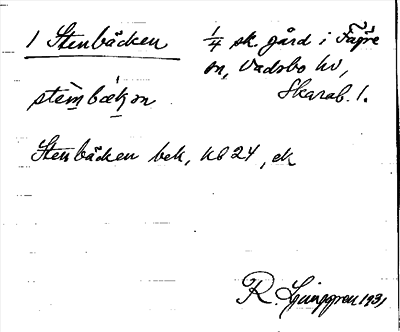 1 Stenbäcken
1/4 sk. gård i Fägre
sn, Vadsbo hd,
Skarab. l.
stèmbækən
Stenbäcken bek, KB 24, ek
R. Ljunggren 1931